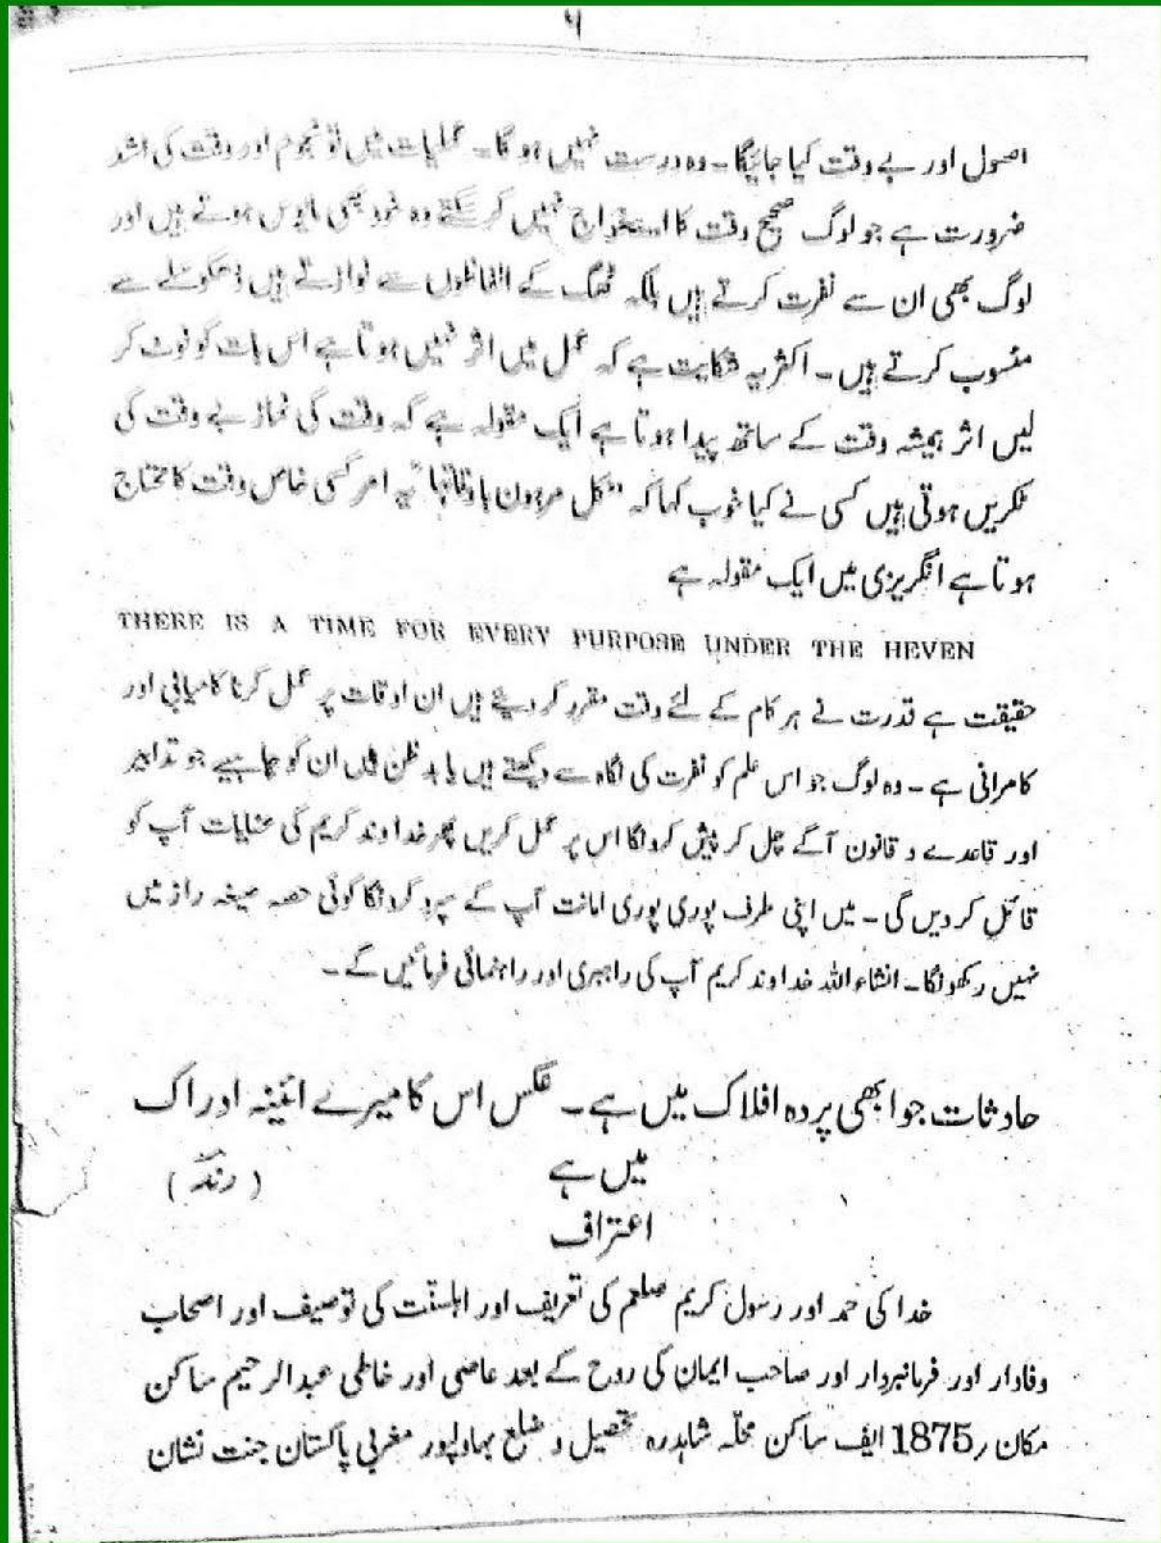 ۶
اصول اور بے وقت کیا جائیگا۔ وہ درست نہیں ہوگا۔ عملیات میں تو نجوم اور وقت کی اشد
ضرورت ہے جو لوگ صحیح وقت کا استخراج نہیں کر سکتے وہ خود بھی مایوس ہوتے ہیں اور
لوگ بھی ان سے نفرت کرتے ہیں بلکہ ٹھگ کے الفاظوں سے نوازتے ہیں ڈھکوسلے سے
منسوب کرتے ہیں۔ اکثر یہ شکایت ہے کہ عمل میں اثر نہیں ہوتا ہے اس بات کو نوٹ کر
لیں اثر ہمیشہ وقت کے ساتھ پیدا ہوتا ہے ایک مقولہ ہے کہ وقت کی نماز بے وقت کی
ٹکریں ہوتی ہیں کسی نے کیا خوب کہا کہ "کل مرہون باوقاتہا" امر کسی خاص وقت کا محتاج
ہوتا ہے انگریزی میں ایک مقولہ ہے
THERE IS A TIME FOR EVERY PURPOSE UNDER THE HEVEN
حقیقت ہے قدرت نے ہر کام کے لئے وقت مقرر کر دیئے ہیں ان اوقات پر عمل کرنا کامیابی اور
کامرانی ہے۔ وہ لوگ جو اس علم کو نفرت کی نگاہ سے دیکھتے ہیں یا بدظن ہیں ان کو چاہیے جو تدابیر
اور قاعدے و قانون آگے چل کر پیش کرونگا اس پر عمل کریں پھر خداوند کریم کی عنایات آپ کو
قائل کر دیں گی۔ میں اپنی طرف پوری پوری امانت آپ کے سپرد کرونگا کوئی حصہ صیغہ راز میں
نہیں رکھونگا۔ انشاء اللہ خداوند کریم آپ کی راہبری اور راہنمائی فرمائیں گے۔
حادثات جو ابھی پردہ افلاک میں ہے۔ عکس اس کا میرے ائینہ ادراک
میں ہے (رند)
اعتراف
خدا کی حمد اور رسول کریم صلعم کی تعریف اور اہلسنّت کی توصیف اور اصحاب
وفادار اور فرمانبردار اور صاحب ایمان کی روح کے بعد عاصی اور خاطی عبدالرحیم ساکن
مکان ر1875 ایف ساکن محلّہ شاہدرہ تحصیل و ضلع بہاولپور مغربی پاکستان جنت نشان